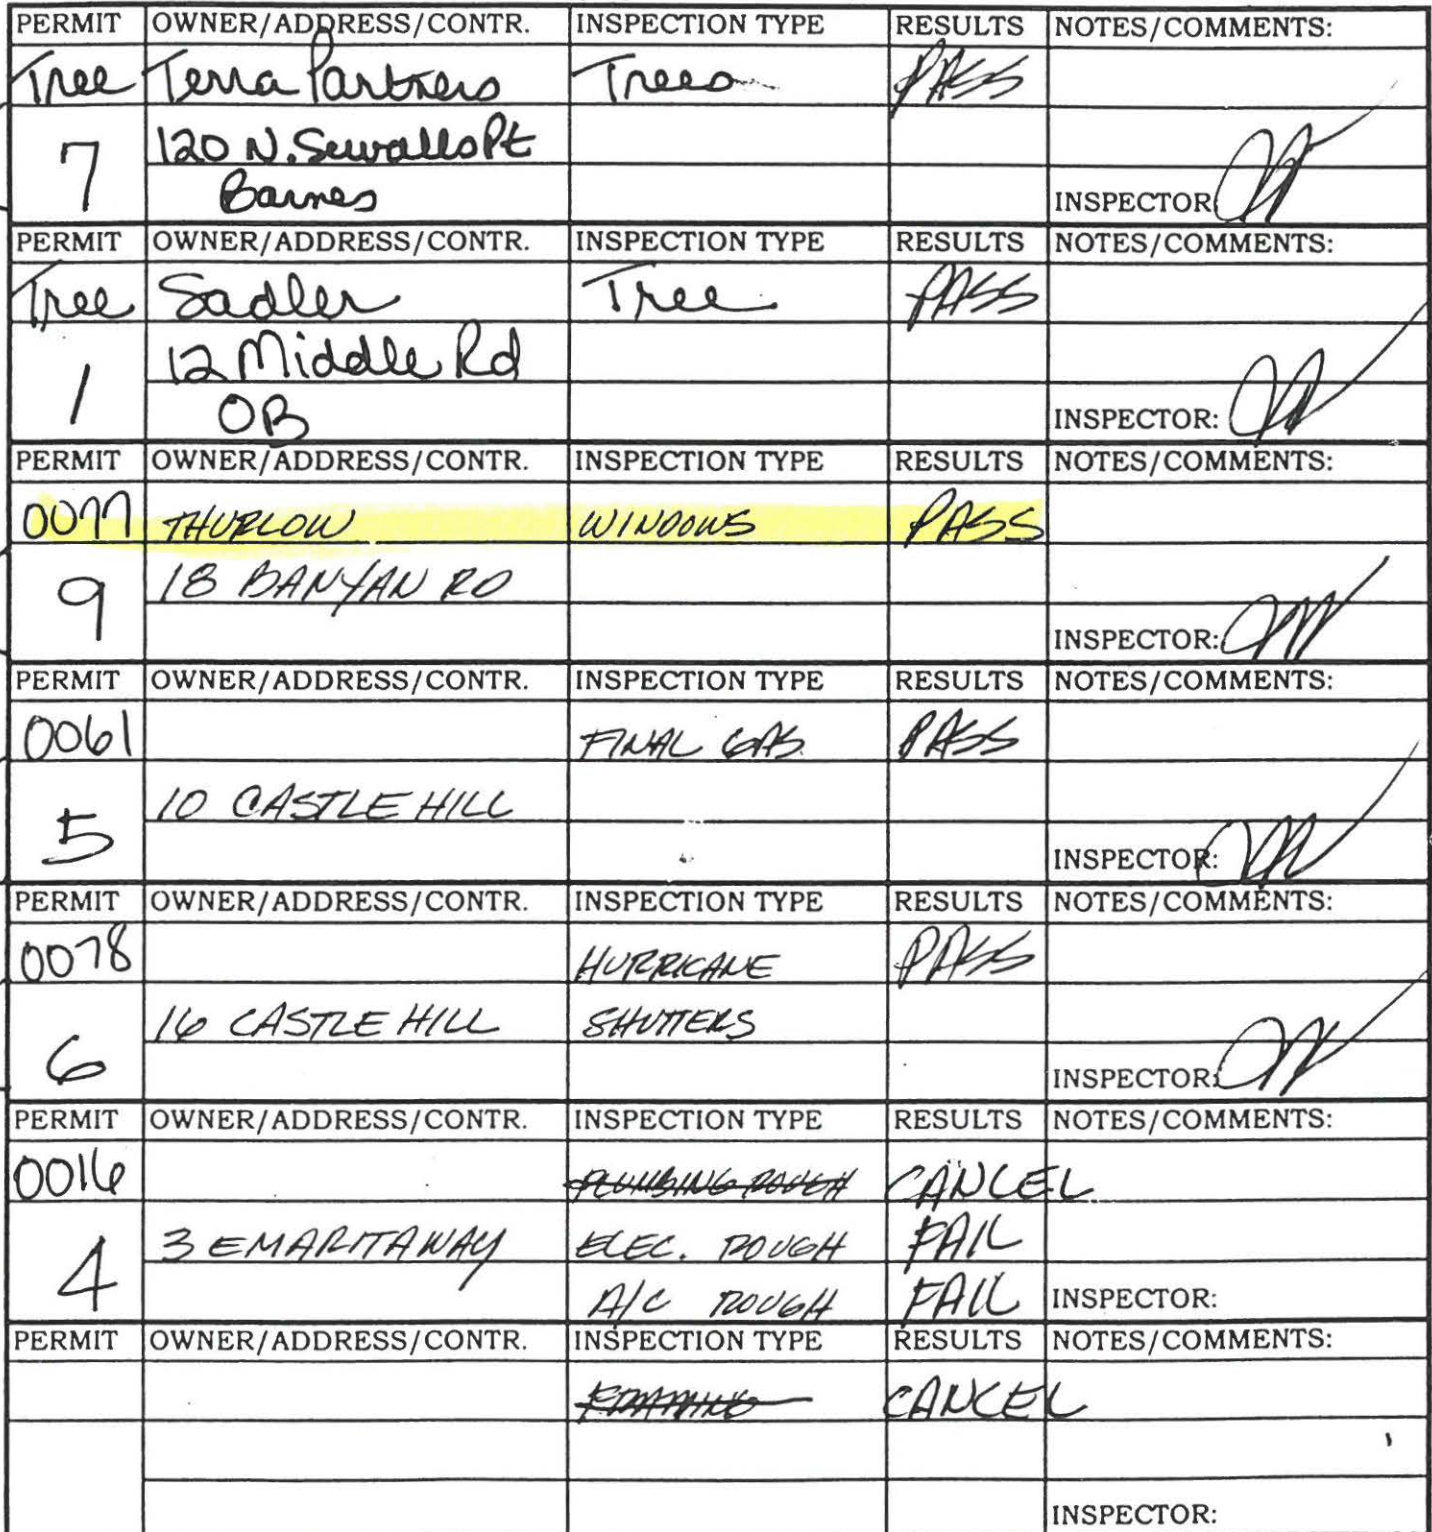 PERMIT OWNER/ADDRESS/CONTR. INSPECTION TYPE RESULTS NOTES/COMMENTS:
Tree Terra Partners Trees PASS
7 120 N. Sewalls Pt
Barnes INSPECTOR:
PERMIT OWNER/ADDRESS/CONTR. INSPECTION TYPE RESULTS NOTES/COMMENTS:
Tree Sadler Tree PASS
1 12 Middle Rd
OB INSPECTOR:
PERMIT OWNER/ADDRESS/CONTR. INSPECTION TYPE RESULTS NOTES/COMMENTS:
0077 THURLOW WINDOWS PASS
9 18 BANYAN RD
INSPECTOR:
PERMIT OWNER/ADDRESS/CONTR. INSPECTION TYPE RESULTS NOTES/COMMENTS:
0061 FINAL GAS PASS
5 10 CASTLE HILL
INSPECTOR:
PERMIT OWNER/ADDRESS/CONTR. INSPECTION TYPE RESULTS NOTES/COMMENTS:
0078 HURRICANE PASS
6 16 CASTLE HILL SHUTTERS
INSPECTOR:
PERMIT OWNER/ADDRESS/CONTR. INSPECTION TYPE RESULTS NOTES/COMMENTS:
0016 PLUMBING ROUGH CANCEL
4 3 EMARITA WAY ELEC. ROUGH FAIL
A/C ROUGH FAIL INSPECTOR:
PERMIT OWNER/ADDRESS/CONTR. INSPECTION TYPE RESULTS NOTES/COMMENTS:
FRAMING CANCEL
INSPECTOR: